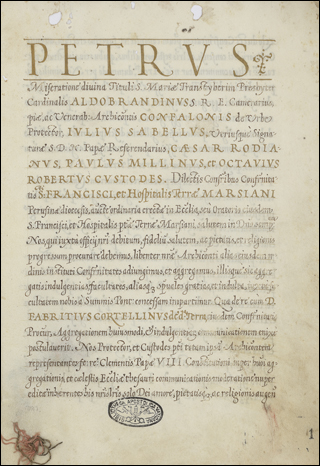 PETRVS
Miseratione divina Tituli S. Mariæ Transtyberim Presbyter
Cardinalis ALDOBRANDINVS S. R. E. Camerarius,
piæ, ac Venerab: Archiconis CONFALONIS de Vrbe
Protector, IVLIVS SABELLVS, Vtriusque Signa
turæ S. D. N. Papæ Referendarius, CÆSAR RODIA
NVS, PAVLVS MILLINVS, et OCTAVIVS
ROBERTVS CVSTODES. Dilectis Confribus Confrenita
tis S. FRANCISCI, et Hospitalis Terræ MARSIANI
Perusinæ diocesis, aucte ordinaria erectæ in Ecclia, seu Oratorio eiusdem
S. Francisci, et Hospitalis ptæ Terræ Marsiani, salutem in Dno
Nos, qui iuxta officij nri debitum, fidelium salutem, ac pietatis, et religionis
progressum procurare debemus, libenter nræ Archiconti alias eiusdem
instituti Confrnitates adiungimus, et aggregamus, illisque
indulgentias, facultates, aliasq; spuales gratias, et indulta,
cultatem nobis a Summis Pont: concessam impartimur. Qua de re cum D.
FABRITIVS CORTELLINVS de ead. Terra, in
Procur. Aggregationem huiusmodi, & indulgentiæ communicationem
postulaverit. Nos Protector, et Custodes pti totam ipsam Archiconta
representantes fe: re: Clementis Papæ VIII Constitutioni super huiusmodi
aggregationis, et cælestis Eccliæ thesauri communicationis moderatione nuper
edite inhærentes his nris, solo Dei amore, pietatisq; ac religionis augen
1